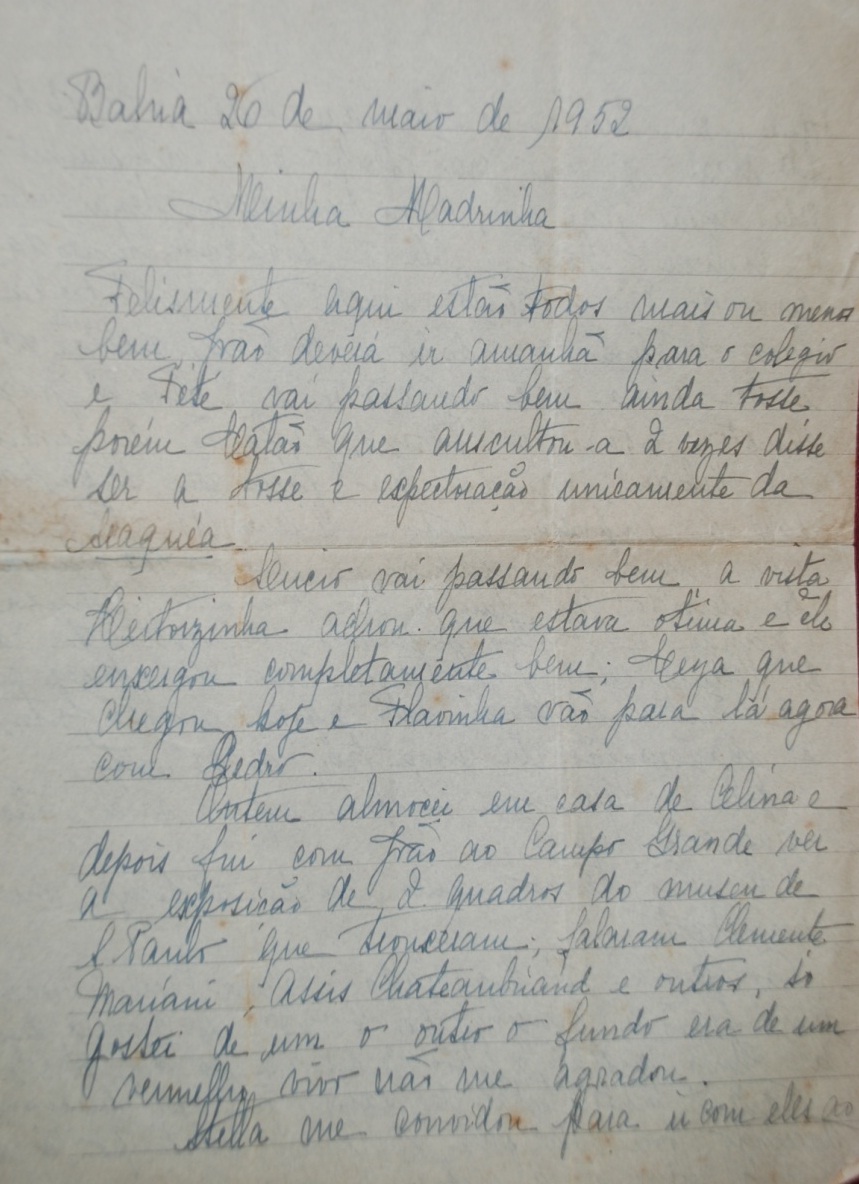 Bahia 26 de maio de 1952
Minha Madrinha
Felismente aqui estão todos mais ou menos
bem, João deverá ir amanhã para o colegio
e Teté vai passando bem ainda tosse
porém Catão que auscultou-a 2 vezes disse
ser a tosse e espectoração unicamente da
traquéa.
Lucio vai passando bem, a vista
Heitorzinha achou que estava otima e êle
enxergou completamente bem; que
chegou hoje e Flavinha vão para lá agora
com Pedro.
Ontem almocei em casa de Celina e
depois fui com João ao Campo Grande ver
a exposição de 2 quadros do museu de
S. Paulo que trouxeram; falaram Clemente
Mariani, Assis Chateaubriand e outros, só
gostei de um o outro o fundo era de um
vermelho vivo não me agradou.
Stella me convidou para ir com eles ao